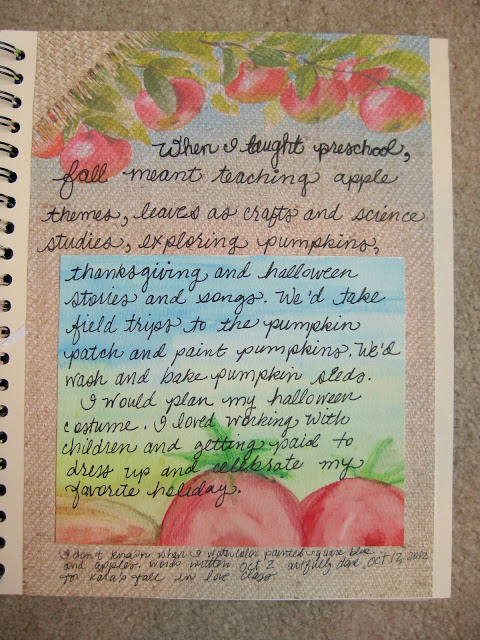 When I taught preschool,
fall meant teaching apple
themes, leaves as crafts and science
studies, exploring pumpkins,
thanksgiving and halloween
stories and songs. We'd take
field trips to the pumpkin
patch and paint pumpkins. We'd
wash and bake pumpkin seeds.
I would plan my halloween
costume. I loved working with
children and getting paid to
dress up and celebrate my
favorite holiday.
I don't know when I watercolor painted square blue
and apples. words written oct 2 artfully done, oct 12, 2012
for Kara's fall in love class